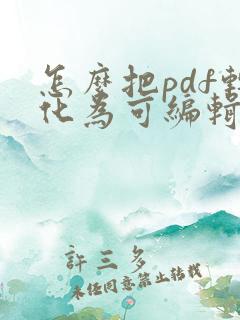 怎麼把pdf
化為可編輯
許三多
未經同意禁止轉載